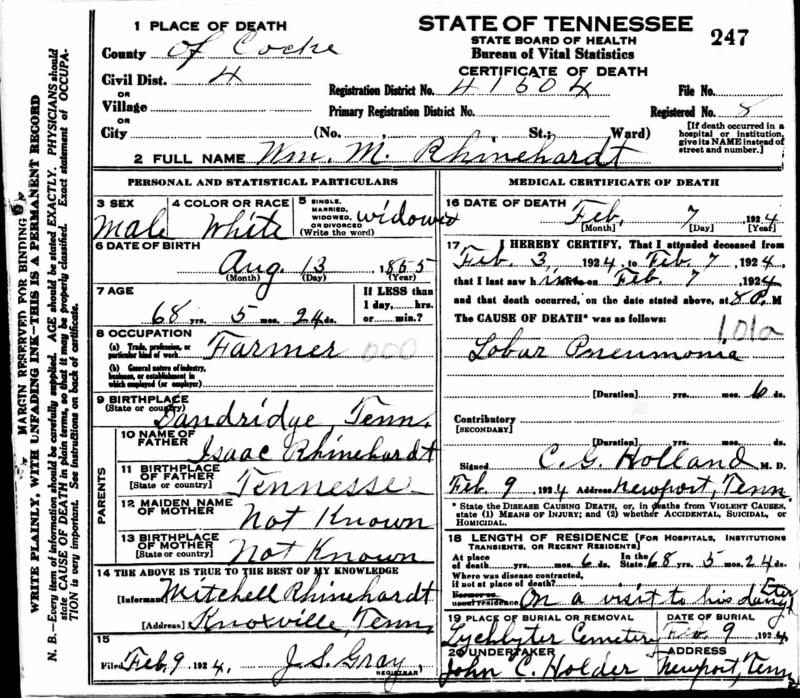 STATE OF TENNESSEE
STATE BOARD OF HEALTH
Bureau of Vital Statistics
CERTIFICATE OF DEATH
247
1 PLACE OF DEATH
County of Cocke
Civil Dist. 4
OR
Village
OR
City (No. , St.; Ward)
Registration District No. 41604 File No.
Primary Registration District No. Registered No. 8
[If death occurred in a hospital or institution, give its NAME instead of street and number.]
2 FULL NAME Wm. M. Rhinehardt
PERSONAL AND STATISTICAL PARTICULARS
3 SEX Male
4 COLOR OR RACE White
5 SINGLE, MARRIED, WIDOWED, OR DIVORCED (Write the word) widowed
6 DATE OF BIRTH
Aug 13, 1855
(Month) (Day) (Year)
7 AGE
68 yrs. 5 mos. 24 ds.
If LESS than 1 day,....hrs. or....min.?
8 OCCUPATION
(a) Trade, profession, or particular kind of work. Farmer 000
(b) General nature of industry, business, or establishment in which employed (or employer)
9 BIRTHPLACE
(State or country) Dandridge, Tenn.
PARENTS
10 NAME OF FATHER Isaac Rhinehardt
11 BIRTHPLACE OF FATHER [State or country] Tennesse
12 MAIDEN NAME OF MOTHER Not Known
13 BIRTHPLACE OF MOTHER (State or country) Not Known
14 THE ABOVE IS TRUE TO THE BEST OF MY KNOWLEDGE
[Informant Mitchell Rhinehardt
[Address] Knoxville, Tenn,
15
Filed Feb. 9, 1924. J. S. Gray,
REGISTRAR
MEDICAL CERTIFICATE OF DEATH
16 DATE OF DEATH Feb, 7, 1924
[Month] [Day] [Year]
17 I HEREBY CERTIFY, That I attended deceased from
Feb. 3, 1924, to Feb. 7, 1924,
that I last saw him on Feb. 7, 1924
and that death occurred, on the date stated above, at 8 P. M
The CAUSE OF DEATH* was as follows:
101a
Lobar Pneumonia
[Duration] yrs. mos. 6 ds.
Contributory
[SECONDARY]
[Duration] yrs. mos. ds.
Signed C. G. Holland M. D.
Feb. 9, 1924 Address Newport, Tenn.
* State the DISEASE CAUSING DEATH, or, in deaths from VIOLENT CAUSES, state (1) MEANS OF INJURY; and (2) whether ACCIDENTAL, SUICIDAL, or HOMICIDAL.
18 LENGTH OF RESIDENCE [FOR HOSPITALS, INSTITUTIONS TRANSIENTS, OR RECENT RESIDENTS]
At place of death yrs. mos. 6 ds. In the State 68 yrs. 5 mos. 24 ds.
Where was disease contracted, if not at place of death?
usual residence On a visit to his daughter
19 PLACE OF BURIAL OR REMOVAL DATE OF BURIAL
Cemetery Feb 9, 1924
20 UNDERTAKER ADDRESS
John C. Holder Newport, Tenn
MARGIN RESERVED FOR BINDING
WRITE PLAINLY, WITH UNFADING INK—THIS IS A PERMANENT RECORD
N. B.—Every item of information should be carefully supplied. AGE should be stated EXACTLY. PHYSICIANS should
state CAUSE OF DEATH in plain terms, so that it may be properly classified. Exact statement of OCCUPA-
TION is very important. See instructions on back of certificate.